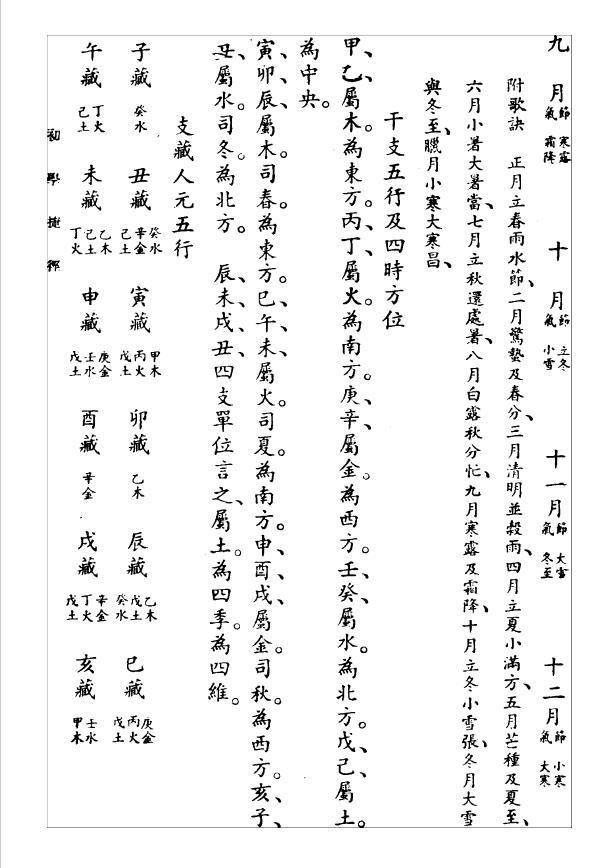 九月 節 寒露 氣 霜降 十月 節 立冬 氣 小雪 十一月 節 大雪 氣 冬至 十二月 節 小寒 氣 大寒
附歌訣 正月立春雨水節、二月驚蟄及春分、三月清明並穀雨、四月立夏小滿方、五月芒種及夏至、
六月小暑大暑當、七月立秋還處暑、八月白露秋分忙、九月寒露及霜降、十月立冬小雪張、冬月大雪
與冬至、臘月小寒大寒昌、
干支五行及四時方位
甲、乙、屬木。為東方。丙、丁、屬火。為南方。庚、辛、屬金。為西方。壬、癸、屬水。為北方。戊、己、屬土。
為中央。
寅、卯、辰、屬木。司春。為東方。巳、午、未、屬火。司夏。為南方。申、酉、戌、屬金。司秋。為西方。亥、子、
丑、屬水。司冬。為北方。 辰、未、戌、丑、四支單位言之、屬土。為四季。為四維。
支藏人元五行
子藏 癸水 丑藏 癸水 辛金 己土 寅藏 甲木 丙火 戊土 卯藏 乙木 辰藏 乙木 戊土 癸水 巳藏 庚金 丙火 戊土
午藏 丁火 己土 未藏 乙木 己土 丁火 申藏 庚金 壬水 戊土 酉藏 辛金 戌藏 辛金 丁火 戊土 亥藏 壬水 甲木
初學捷徑